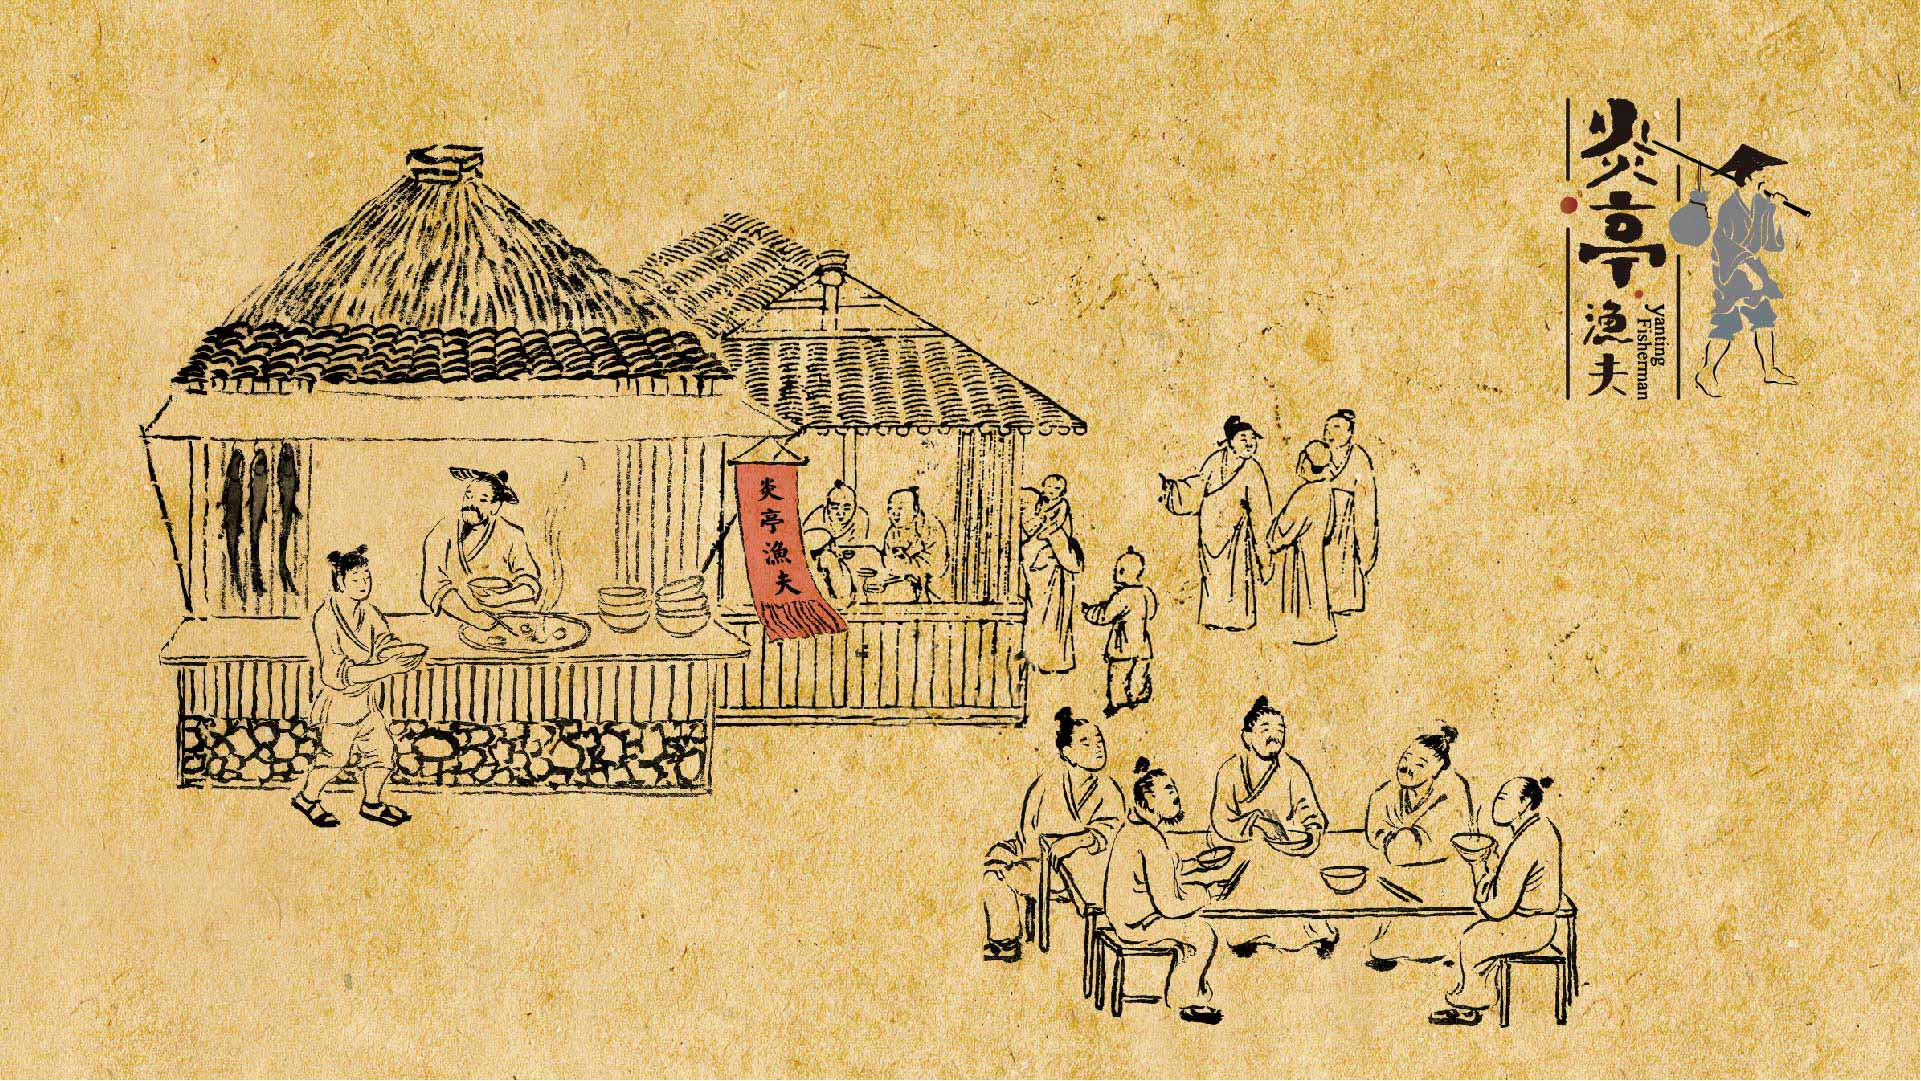 炎亭漁夫
炎亭
漁夫
Yanting
Fisherman